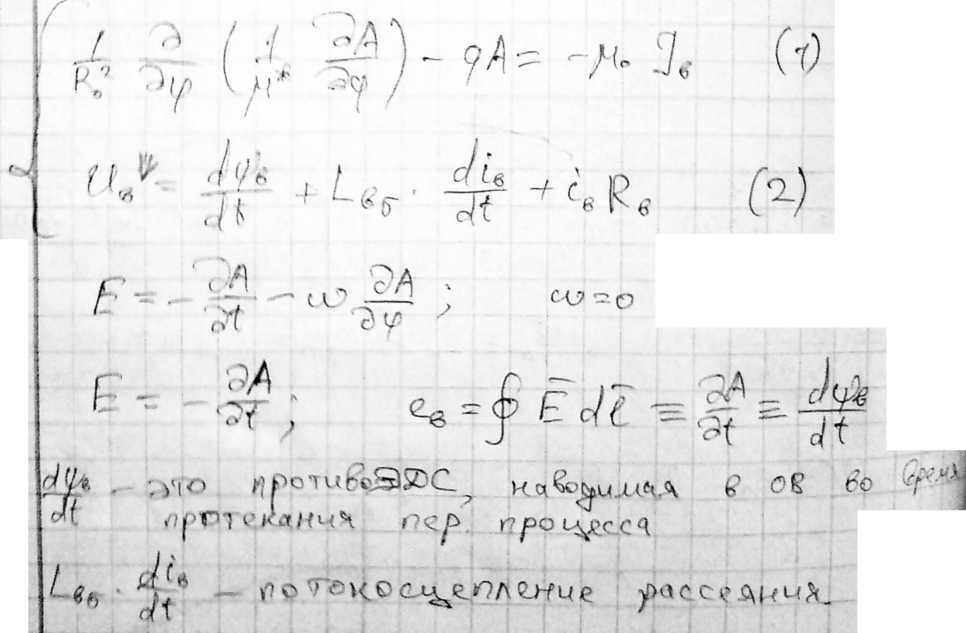 1/R₀² ∂/∂φ (1/μ* ∂A/∂φ) - qA = -μ₀ J_в (1)
U_в = dψ_в/dt + L_вδ · di_в/dt + i_в R_в (2)
E = - ∂A/∂t - ω ∂A/∂φ ; ω = 0
E = - ∂A/∂t ; e_в = ∮ E̅ dl̅ ≡ ∂A/∂t ≡ dψ_в/dt
dψ_в/dt - это противоЭДС, наводимая в ОВ во время
протекания пер. процесса
L_вδ · di_в/dt - потокосцепление рассеяния